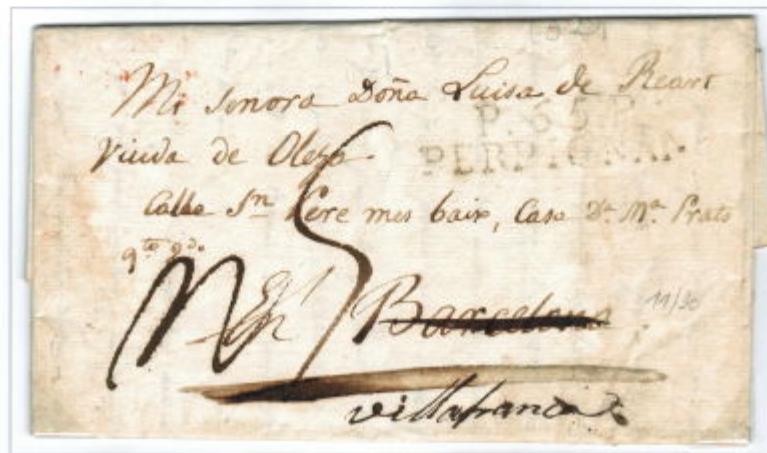 Mi Senora Doña Luisa de Reart
P. 65. P.
Viuda de Oleza.
PERPIGNAN
Calle Sn Pere mes baix, Casa Dn Ma Prats
qto 2do
En Barcelona
11/30
villafranca